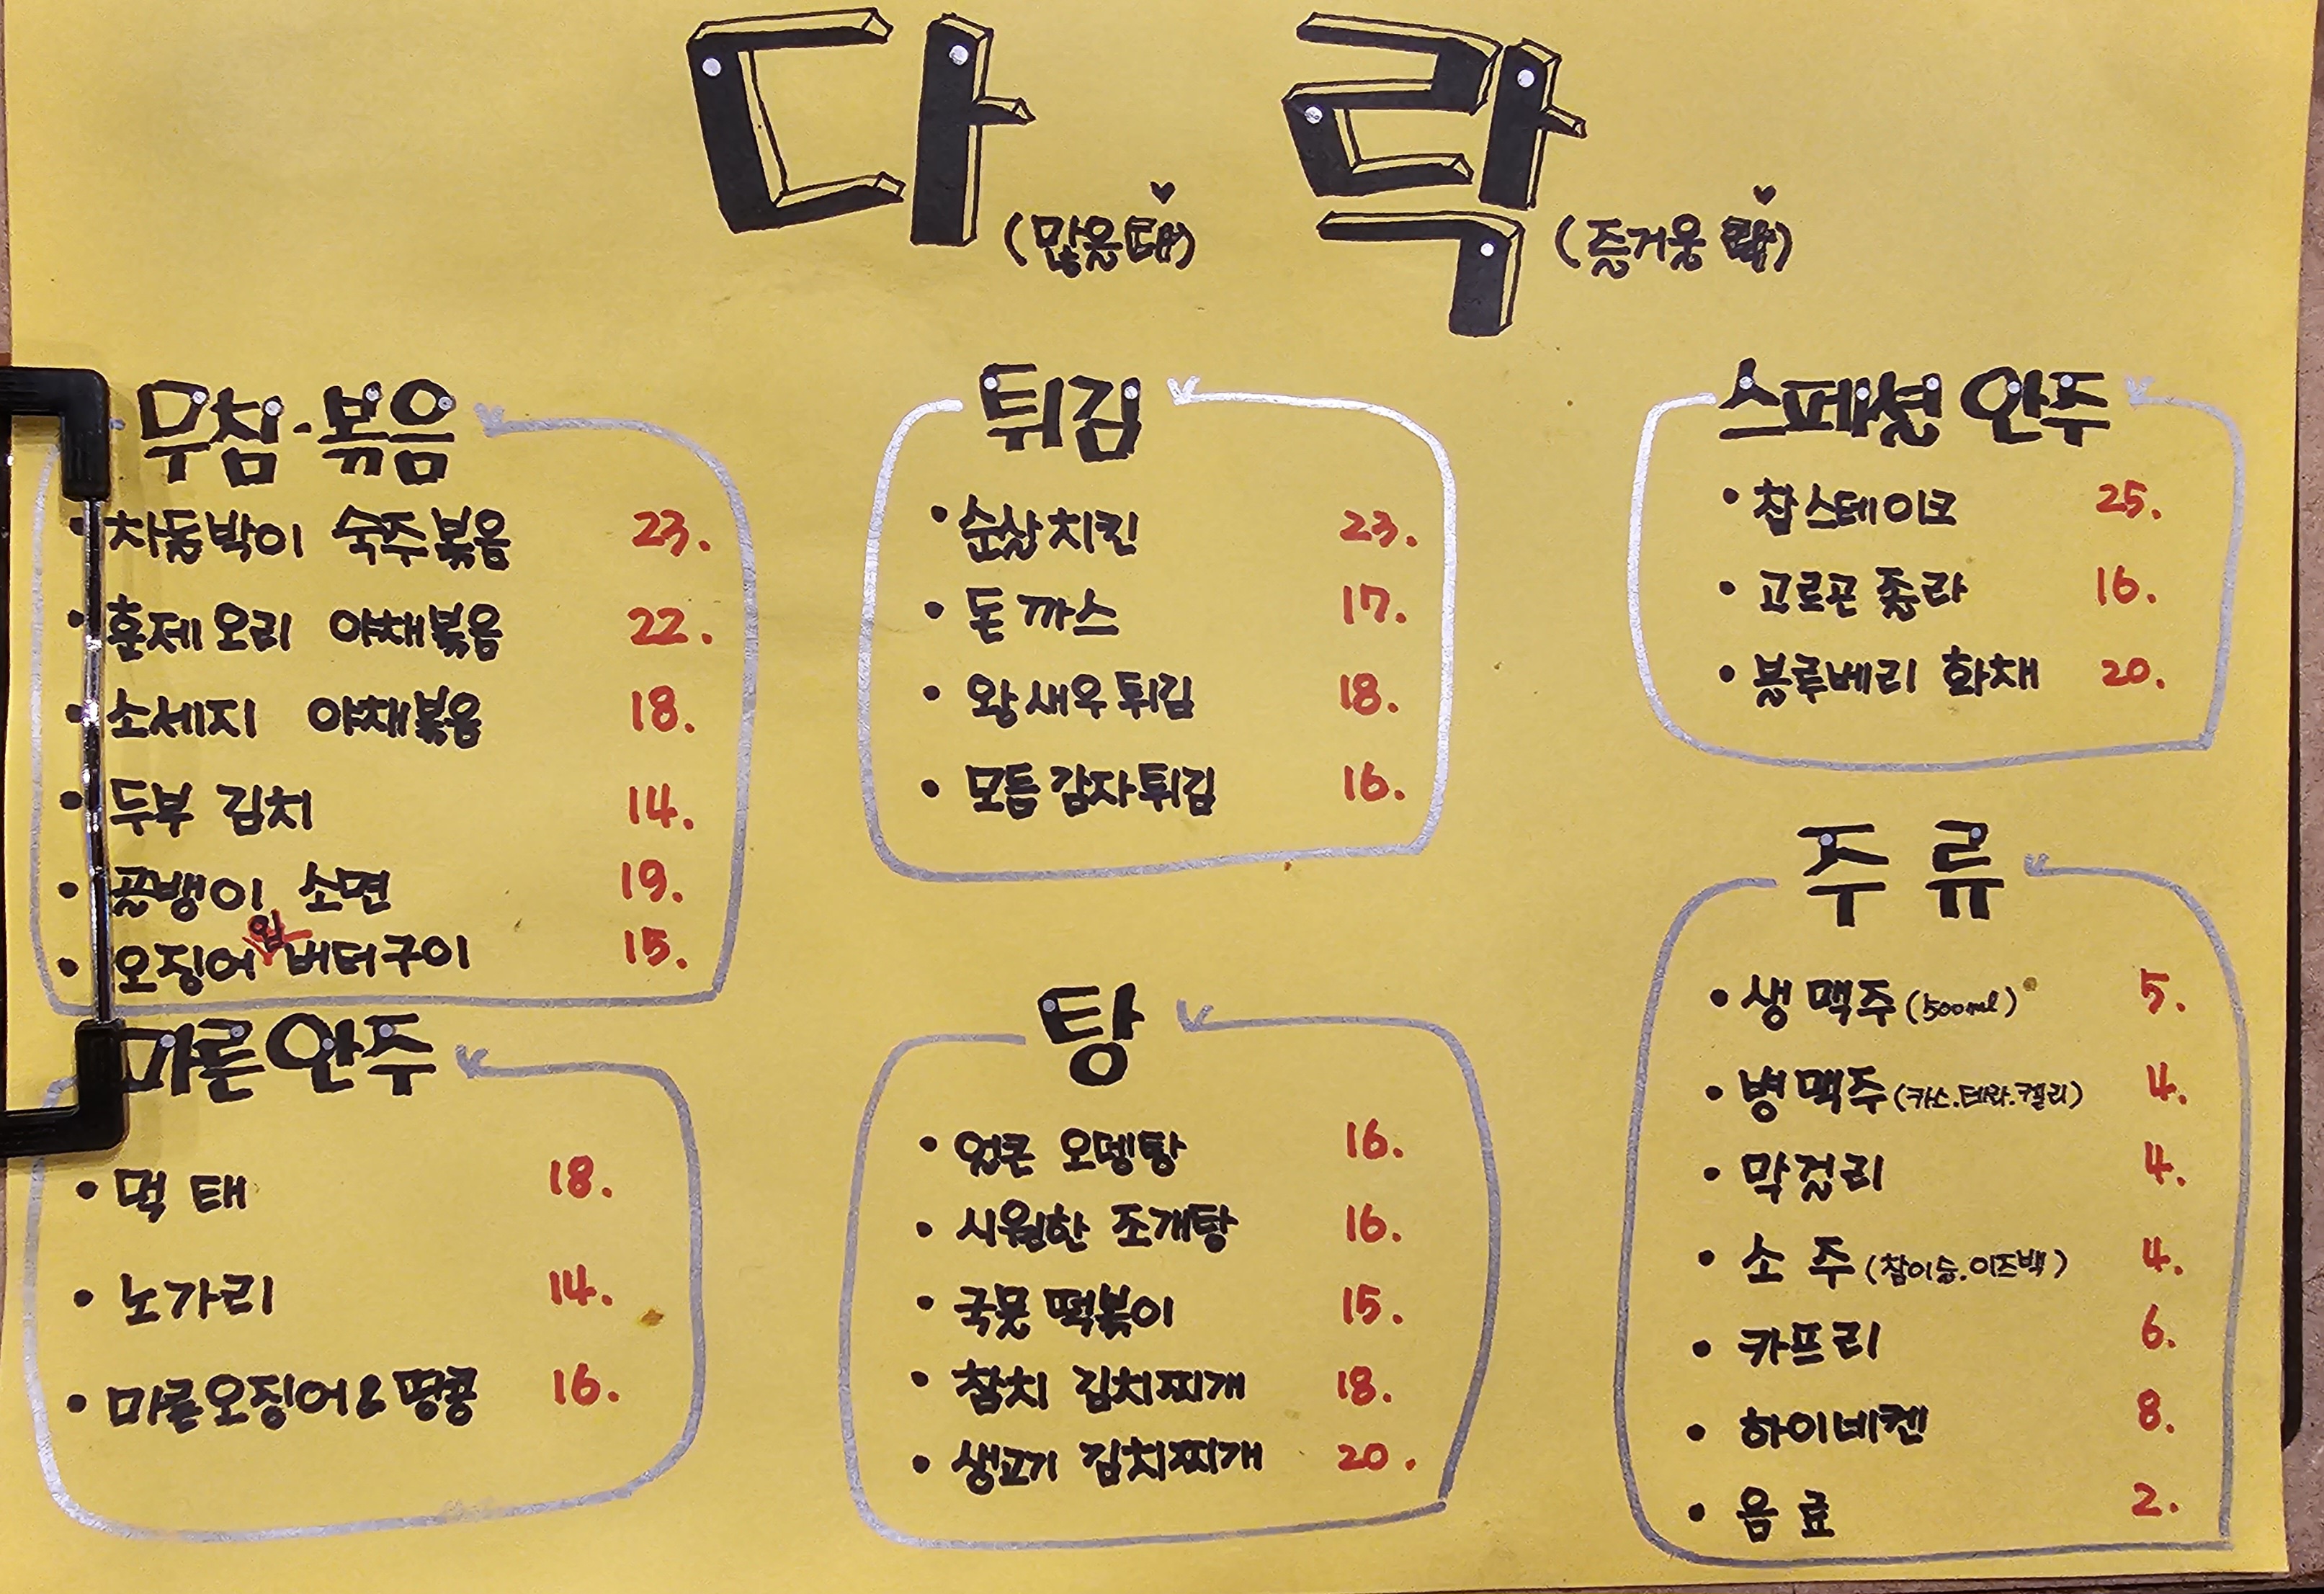 다 락
(많을 다) (즐거울 락)
무침·볶음
차돌박이 숙주볶음 23.
훈제오리 야채볶음 22.
소세지 야채볶음 18.
두부 김치 14.
골뱅이 소면 19.
오징어입버터구이 15.
마른안주
먹태 18.
노가리 14.
마른오징어&땅콩 16.
튀김
순살치킨 23.
돈까스 17.
왕새우튀김 18.
모듬감자튀김 16.
탕
얼큰 오뎅탕 16.
시원한 조개탕 16.
국물 떡볶이 15.
참치 김치찌개 18.
생고기 김치찌개 20.
스페셜 안주
찹스테이크 25.
고르곤졸라 16.
블루베리 화채 20.
주류
생맥주(500ml) 5.
병맥주(카스.테라.켈리) 4.
막걸리 4.
소주(참이슬.이즈백) 4.
카프리 6.
하이네켄 8.
음료 2.